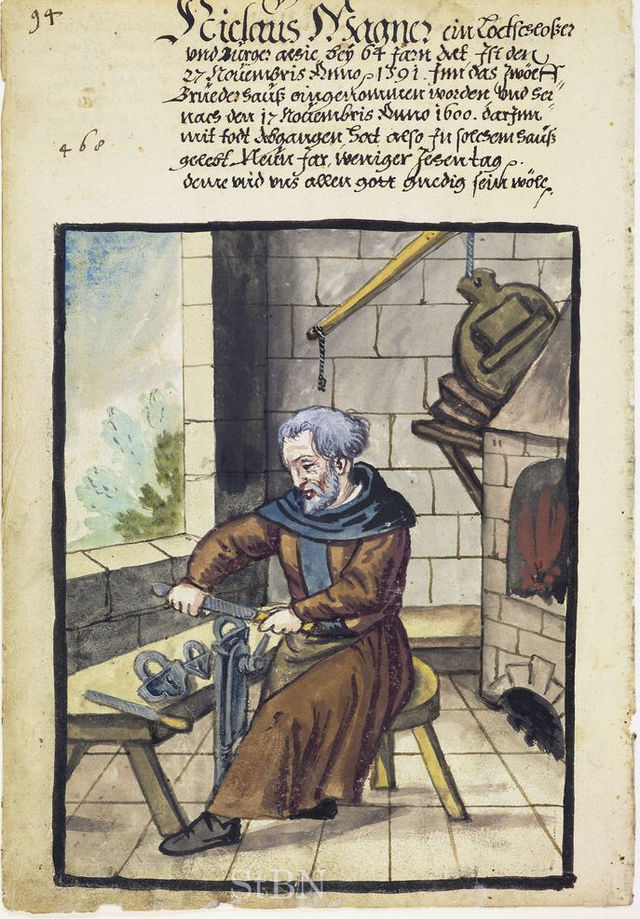 94
Niclaus Wagner ein Lochschloßer
und Bürger alhie, bey 64 Jarn Alt Ist den
27 Nouembris Anno, 1591. Inn das zwölff
Bruederhauß eingenommen worden und her-
nach den 17 Nouembris Anno 1600. darInn
mit todt Abgangen hat also In solchem hauß
gelebt Neun Jar, weniger zehen tag.
deme und uns allen gott gnedig sein wöle,
468
StBN